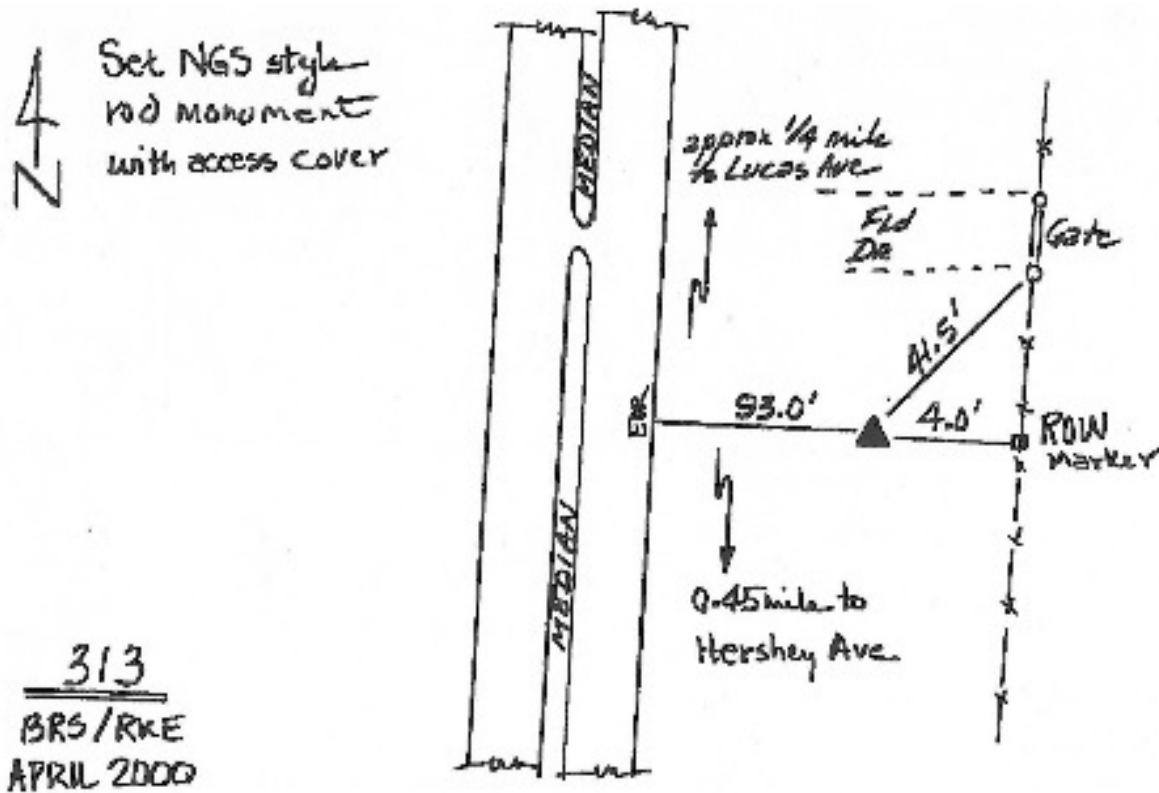 Set NGS style
rod monument
with access cover
N
MEDIAN
approx 1/4 mile
to Lucas Ave
Fld
DR
Gate
41.5'
93.0'
4.0'
ROW
Marker
MEDIAN
0.45 mile to
Hershey Ave
313
BRS/RKE
APRIL 2000